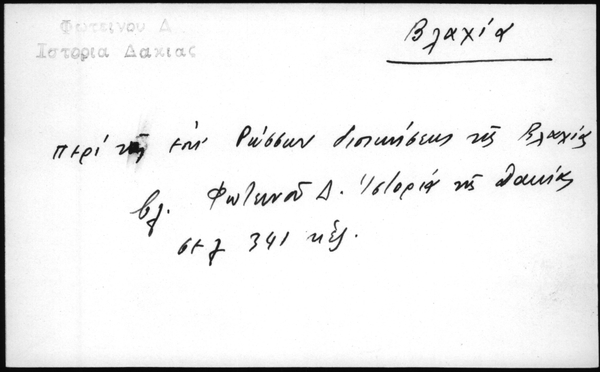 Φωτεινου Δ
Ιστορια Δακιας
Βλαχία
περί τῆς ἐπί Ρώσσων διοικήσεως τῆς Βλαχίας
βλ. Φωτεινοῦ Δ. Ἱστορία τῆς Δακίας
σελ 341 κἑξ.